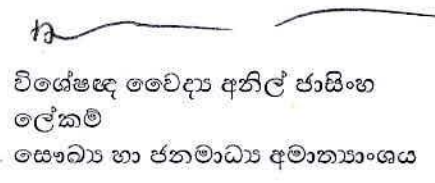 විශේෂඥ වෛද්‍ය අනිල් ජාසිංහ
ලේකම්
සෞඛ්‍ය හා ජනමාධ්‍ය අමාත්‍යාංශය